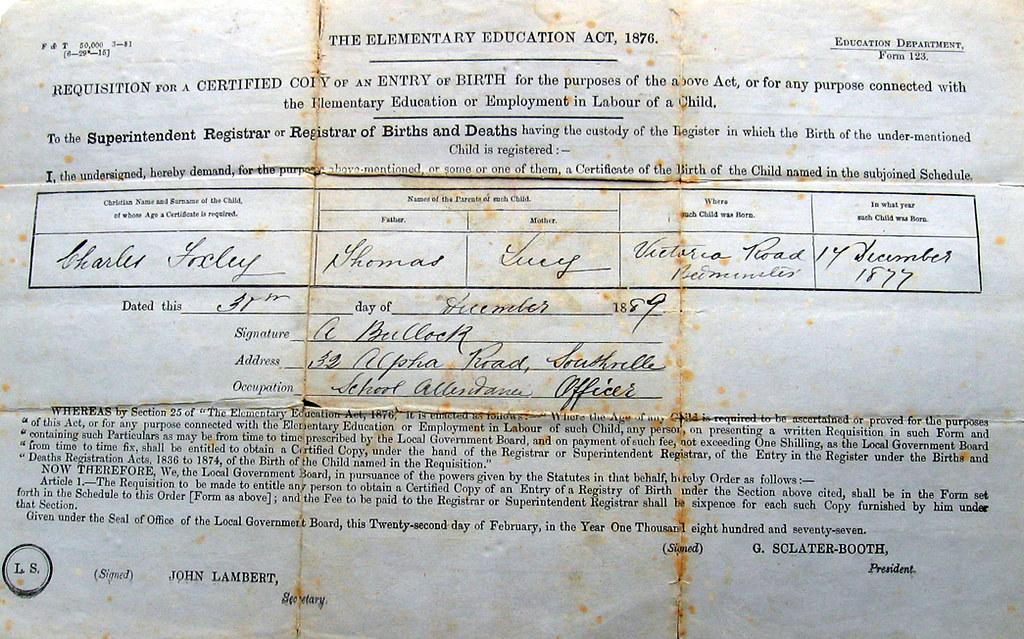 F & T 50,000 3—81
[6—29*—15]
THE ELEMENTARY EDUCATION ACT, 1876.
EDUCATION DEPARTMENT,
Form 123.
REQUISITION FOR A CERTIFIED COPY OF AN ENTRY OF BIRTH for the purposes of the above Act, or for any purpose connected with
the Elementary Education or Employment in Labour of a Child.
To the Superintendent Registrar or Registrar of Births and Deaths having the custody of the Register in which the Birth of the under-mentioned
Child is registered:—
I, the undersigned, hereby demand, for the purposes above-mentioned, or some or one of them, a Certificate of the Birth of the Child named in the subjoined Schedule.
Christian Name and Surname of the Child, of whose Age a Certificate is required.
Names of the Parents of such Child.
Father. Mother.
Where such Child was Born.
In what year such Child was Born.
Charles Foxley Thomas Lucy Victoria Road 14 December
Bedminster 1877
Dated this day of December 1889
Signature A Bullock
Address 32 Alpha Road, Southville
Occupation School Attendance Officer
WHEREAS by Section 25 of "The Elementary Education Act, 1876," it is enacted as follows:—"Where the Age of any Child is required to be ascertained or proved for the purposes
" of this Act, or for any purpose connected with the Elementary Education or Employment in Labour of such Child, any person, on presenting a written Requisition in such Form and
" containing such Particulars as may be from time to time prescribed by the Local Government Board, and on payment of such fee, not exceeding One Shilling, as the Local Government Board
" from time to time fix, shall be entitled to obtain a Certified Copy, under the hand of the Registrar or Superintendent Registrar, of the Entry in the Register under the Births and
" Deaths Registration Acts, 1836 to 1874, of the Birth of the Child named in the Requisition."
NOW THEREFORE, We, the Local Government Board, in pursuance of the powers given by the Statutes in that behalf, hereby Order as follows:—
Article 1.—The Requisition to be made to entitle any person to obtain a Certified Copy of an Entry of a Registry of Birth under the Section above cited, shall be in the Form set
forth in the Schedule to this Order [Form as above]; and the Fee to be paid to the Registrar or Superintendent Registrar shall be sixpence for each such Copy furnished by him under
that Section.
Given under the Seal of Office of the Local Government Board, this Twenty-second day of February, in the Year One Thousand eight hundred and seventy-seven.
(Signed) G. SCLATER-BOOTH,
President.
L. S.
(Signed) JOHN LAMBERT,
Secretary.